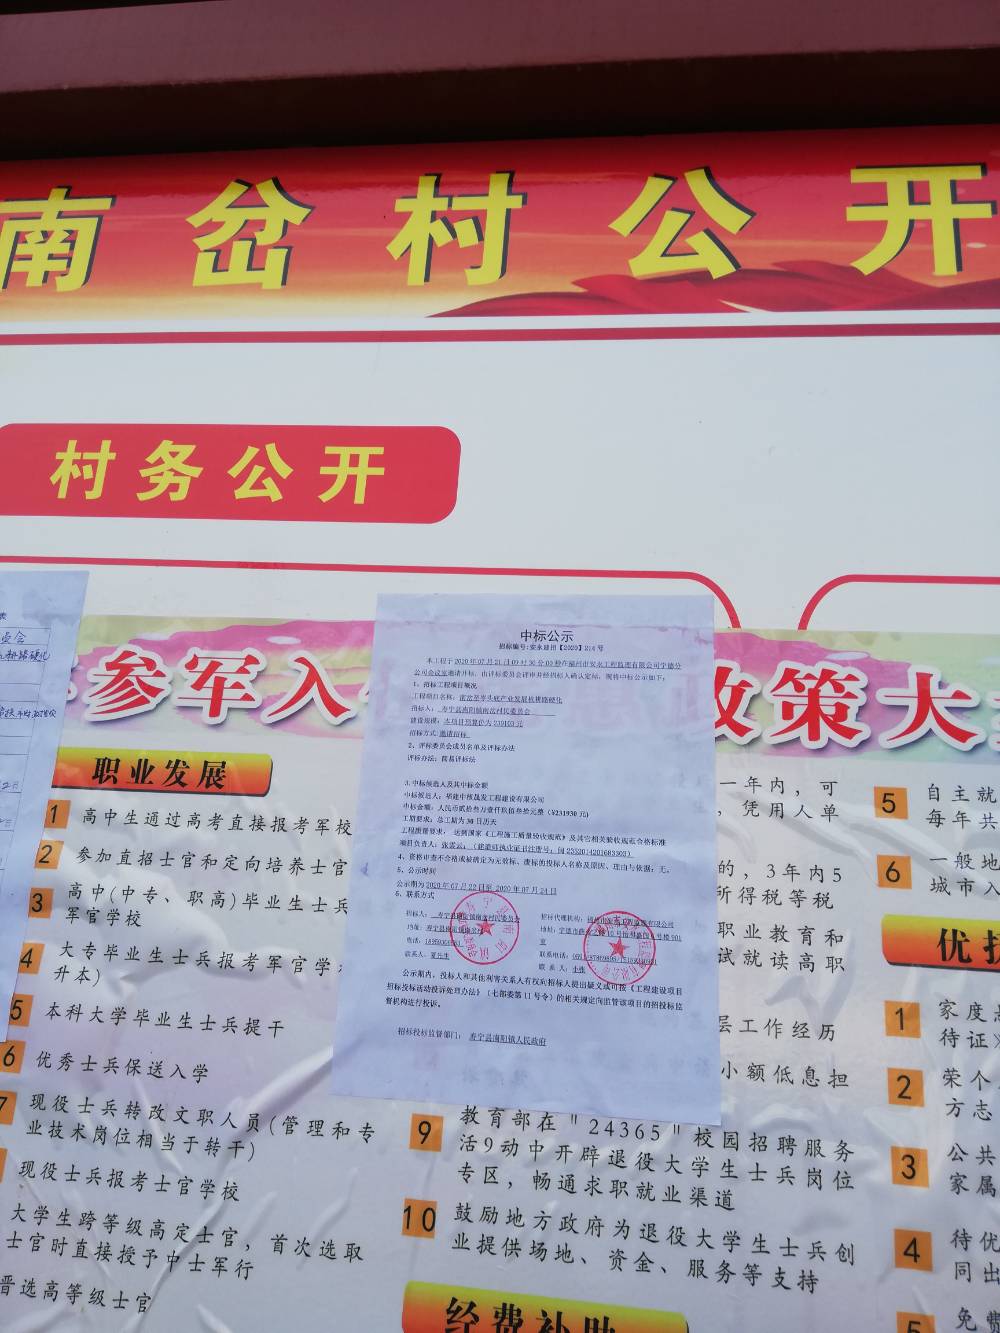 南岔村公开
村务公开
参军入
政策大
职业发展
1 高中生通过高考直接报考军校
2 参加直招士官和定向培养士官
3 高中(中专、职高)毕业生士兵
军官学校
4 大专毕业生士兵报考军官学
升本)
5 本科大学毕业生士兵提干
6 优秀士兵保送入学
7 现役士兵转改文职人员(管理和专
业技术岗位相当于转干)
现役士兵报考士官学校
大学生跨等级高定士官,首次选取
士官时直接授予中士军行
晋选高等级士官
中标公示
招标编号:安永建招【2020】214号
1、招标工程项目概况
招标人:寿宁县南阳镇南岔村民委员会
建设规模:本项目预算价为239103元
招标方式:邀请招标
2、评标委员会成员名单及评标办法
评标办法:简易评标法
3.中标候选人及其中标金额
中标候选人:福建中核晟发工程建设有限公司
中标金额:人民币贰拾叁万壹仟玖佰叁拾元整(¥231930元)
工期要求:总工期为30日历天
工程质量要求:达到国家《工程施工质量验收规范》及其它相关验收规范合格标准
4、资格审查不合格或被确定为无效标、废标的投标人名称及原因、理由与依据:无。
5、公示时间
公示期为2020年07月22日至2020年07月24日
6、联系方式
公示期内,投标人和其他利害关系人有权向招标人提出疑义或可按《工程建设项目
招标投标活动投诉处理办法》(七部委第11号令)的相关规定向监管该项目的招投标监
督机构进行投诉。
招标投标监督部门:寿宁县南阳镇人民政府
一年内,可
,凭用人单
的,3年内5
所得税等税
职业教育和
试就读高职
层工作经历
小额低息担
9 教育部在"24365"校园招聘服务
活9动中开辟退役大学生士兵岗位
专区,畅通求职就业渠道
10 鼓励地方政府为退役大学生士兵创
业提供场地、资金、服务等支持
经费补助
5 自主就
每年共
6 一般地
城市入
优抚
1 家庭
待证》
2 荣个
方志
3 公共
家属
4 待优
同出
5 免费